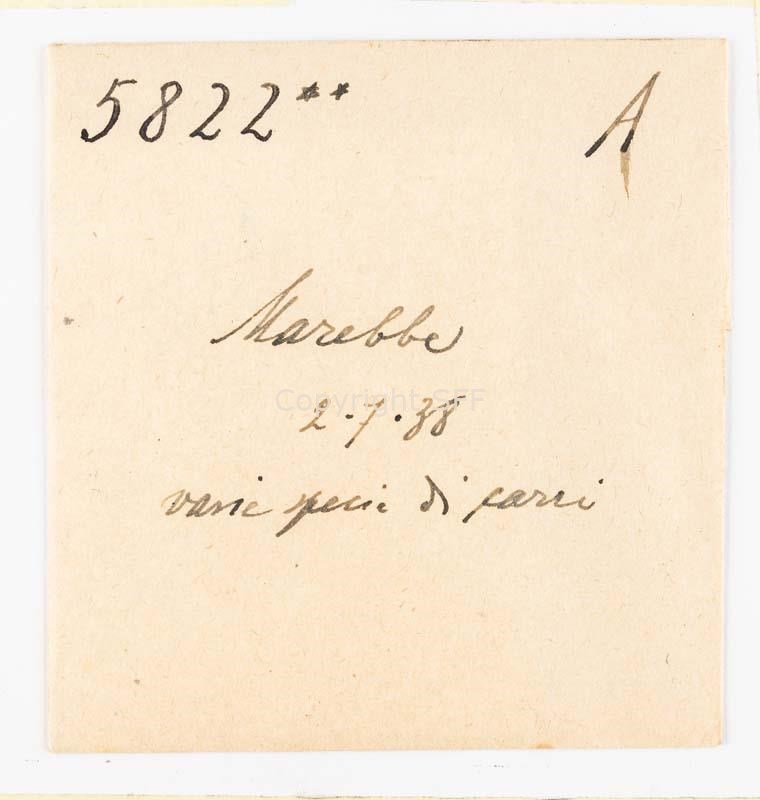 5822** A
Marebbe
Copyright SFF
2.7.38
varie specie di carri